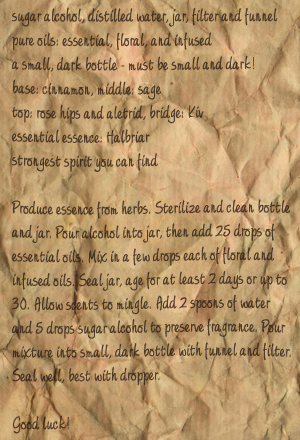 sugar alcohol, distilled water, jar, filter and funnel
pure oils: essential, floral, and infused
a small, dark bottle - must be small and dark!
base: cinnamon, middle: sage
top: rose hips and aletrid, bridge: Kiv
essential essence: Halbriar
strongest spirit you can find
Produce essence from herbs. Sterilize and clean bottle
and jar. Pour alcohol into jar, then add 25 drops of
essential oils. Mix in a few drops each of floral and
infused oils. Seal jar, age for at least 2 days or up to
30. Allow scents to mingle. Add 2 spoons of water
and 5 drops sugar alcohol to preserve fragrance. Pour
mixture into small, dark bottle with funnel and filter.
Seal well, best with dropper.
Good luck!